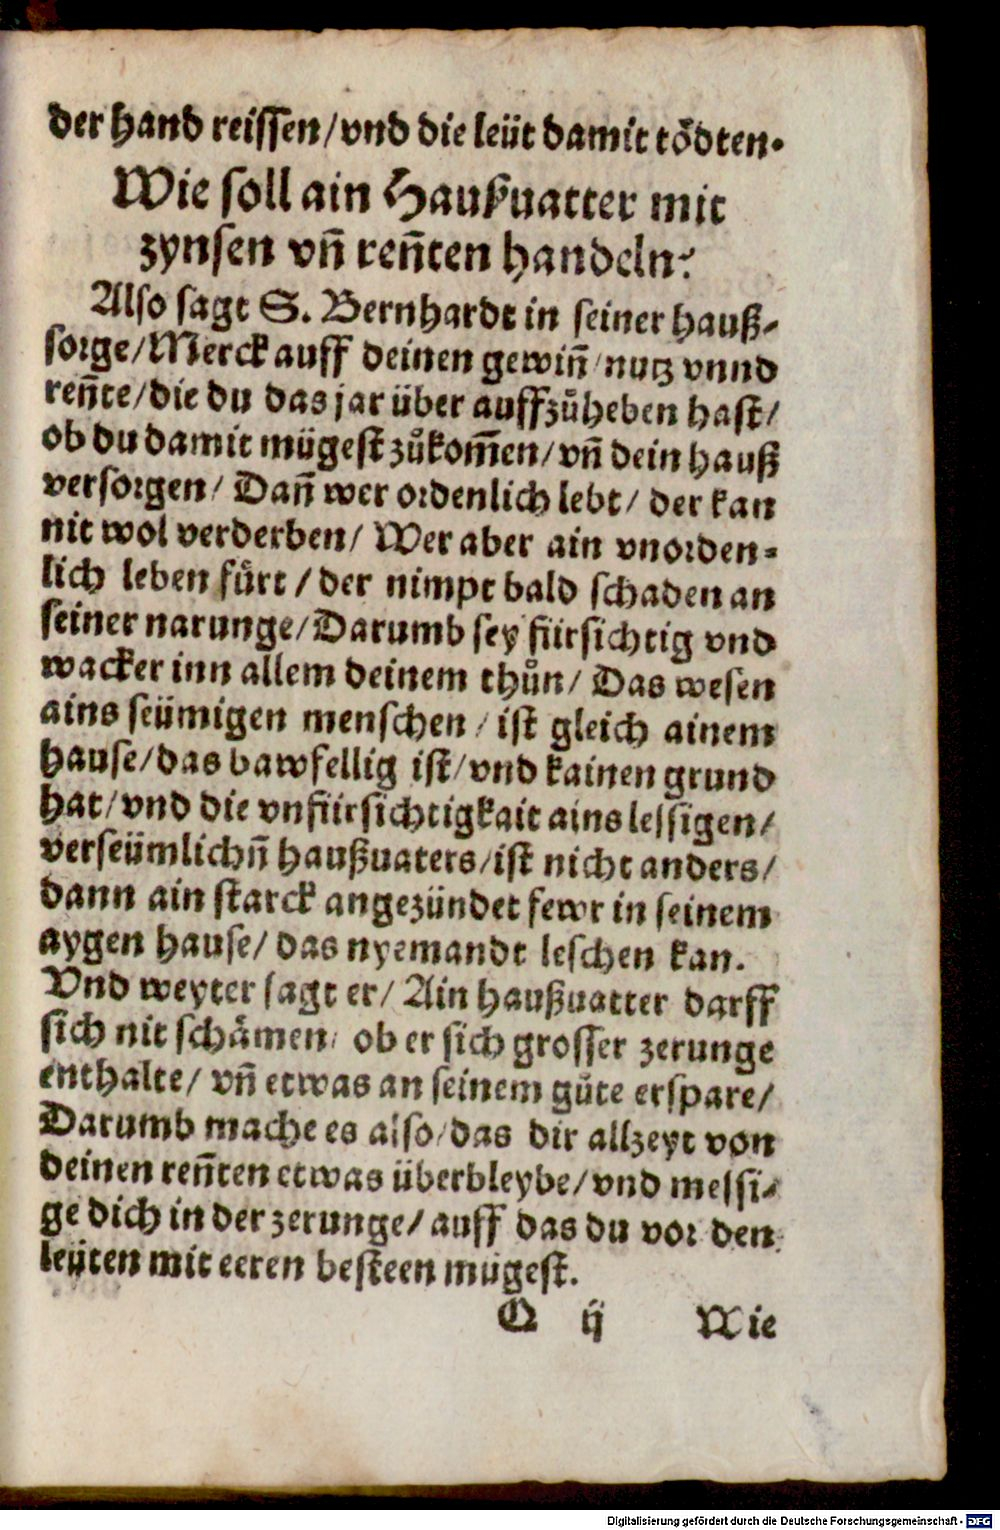 der hand reissen/vnd die leüt damit tödten.
Wie soll ain Haußuatter mit
zynsen vñ reñten handeln?
Also sagt S. Bernhardt in seiner hauß-
sorge/Merck auff deinen gewiñ/nutz vnnd
reñte/die du das jar über auffzůheben hast/
ob du damit mügest zůkom̃en/vñ dein hauß
versorgen/ Dañ wer ordenlich lebt/ der kan
nit wol verderben/ Wer aber ain vnorden-
lich leben fůrt/der nimpt bald schaden an
seiner narunge/Darumb sey fürsichtig vnd
wacker inn allem deinem thůn/ Das wesen
ains seümigen menschen/ist gleich ainem
hause/das bawfellig ist/vnd kainen grund
hat/vnd die vnfürsichtigkait ains lessigen/
verseümlichñ haußuaters/ist nicht anders/
dann ain starck angezündet fewr in seinem
aygen hause/ das nyemandt leschen kan.
Vnd weyter sagt er/ Ain haußuatter darff
sich nit schämen/ ob er sich grosser zerunge
enthalte/ vñ etwas an seinem gůte erspare/
Darumb mache es also/das dir allzeyt von
deinen reñten etwas überbleybe/vnd messi-
ge dich in der zerunge/auff das du vor den
leüten mit eeren besteen mügest.
Q ij Wie
Digitalisierung gefördert durch die Deutsche Forschungsgemeinschaft - DFG